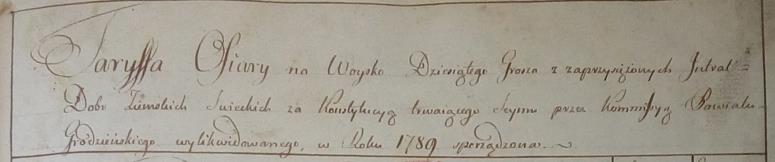 Taryffa Ofiary na Woysko Dziesiątego Grosza z zaprzysiężonych Intrat
Dobr Ziemskich Swieckich za Konstytucyą trwaiącego Seymu przez Kommissyą Powiatu
Grodzieńskiego wylikwidowanego, w Roku 1789 sporządzona.